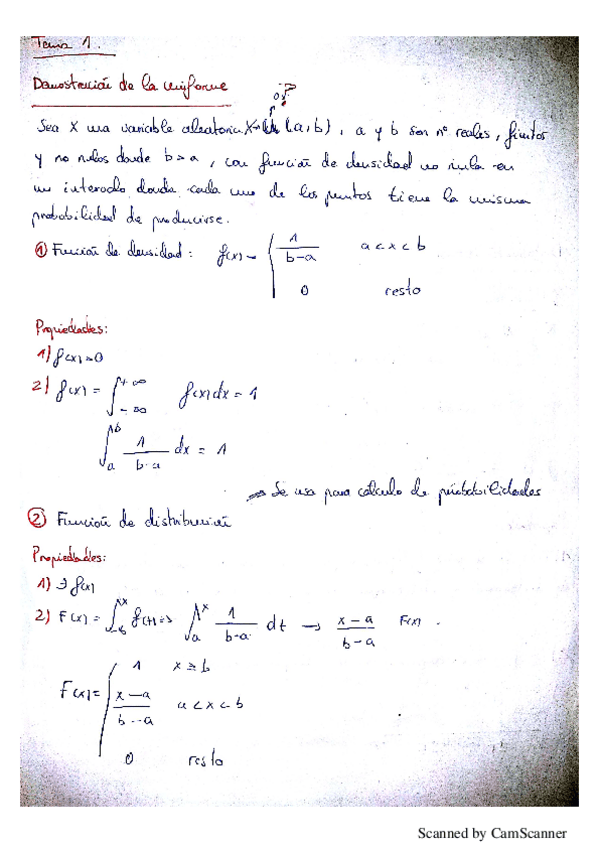 Tema 1.
Demostración de la uniforme
Sea X una variable aleatoria X → U (a, b), a y b son nº reales, finitos
y no nulos donde b > a, con función de densidad no nula en
un intervalo donde cada uno de los puntos tiene la misma
probabilidad de producirse.
① Función de densidad: f(x) = { 1/(b-a) a < x < b
0 resto
Propiedades:
1) f(x) ≥ 0
2) f(x) = ∫_{-∞}^{+∞} f(x)dx = 1
∫_a^b 1/(b-a) dx = 1
→ Se usa para cálculo de probabilidades
② Función de distribución
Propiedades:
1) ∃ f(x)
2) F(x) = ∫_{-∞}^x f(t) => ∫_a^x 1/(b-a) dt → (x-a)/(b-a) F(x).
F(x) = { 1 x ≥ b
(x-a)/(b-a) a < x < b
0 resto
Scanned by CamScanner